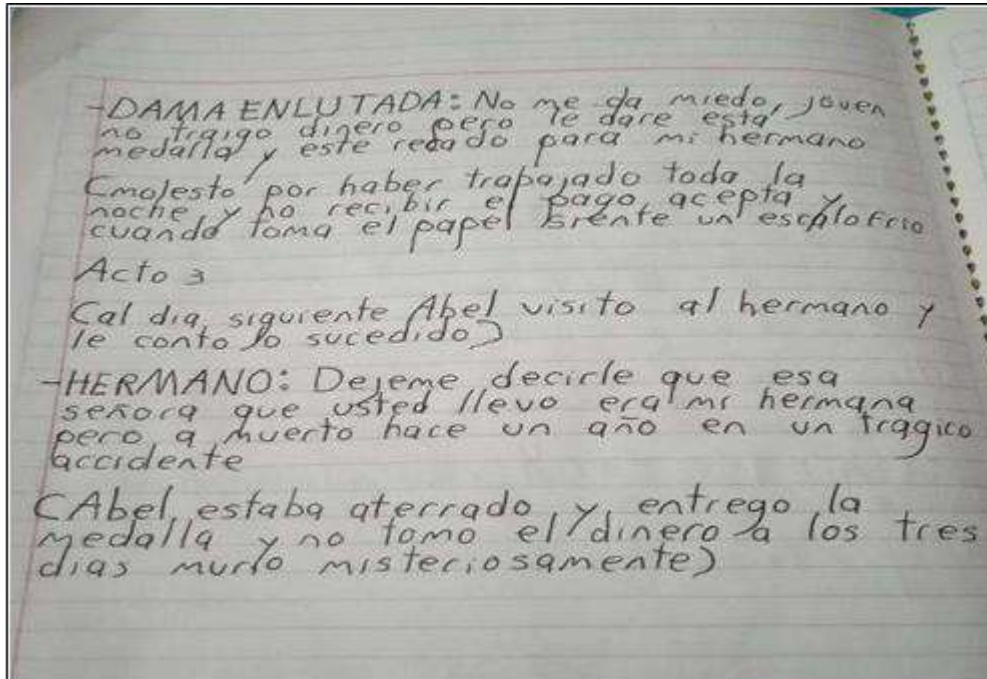 -DAMA ENLUTADA: No me da miedo, joven
no traigo dinero pero le dare esta
medalla y este recado para mi hermano
(molesto por haber trabajado toda la
noche y no recibir el pago acepta y
cuando toma el papel siente un escalofrio
Acto 3
(al dia siguiente Abel visito al hermano y
le conto lo sucedido)
-HERMANO: Dejeme decirle que esa
señora que usted llevo era mi hermana
pero a muerto hace un año en un tragico
accidente
(Abel estaba aterrado y entrego la
medalla y no tomo el dinero a los tres
dias murio misteriosamente)